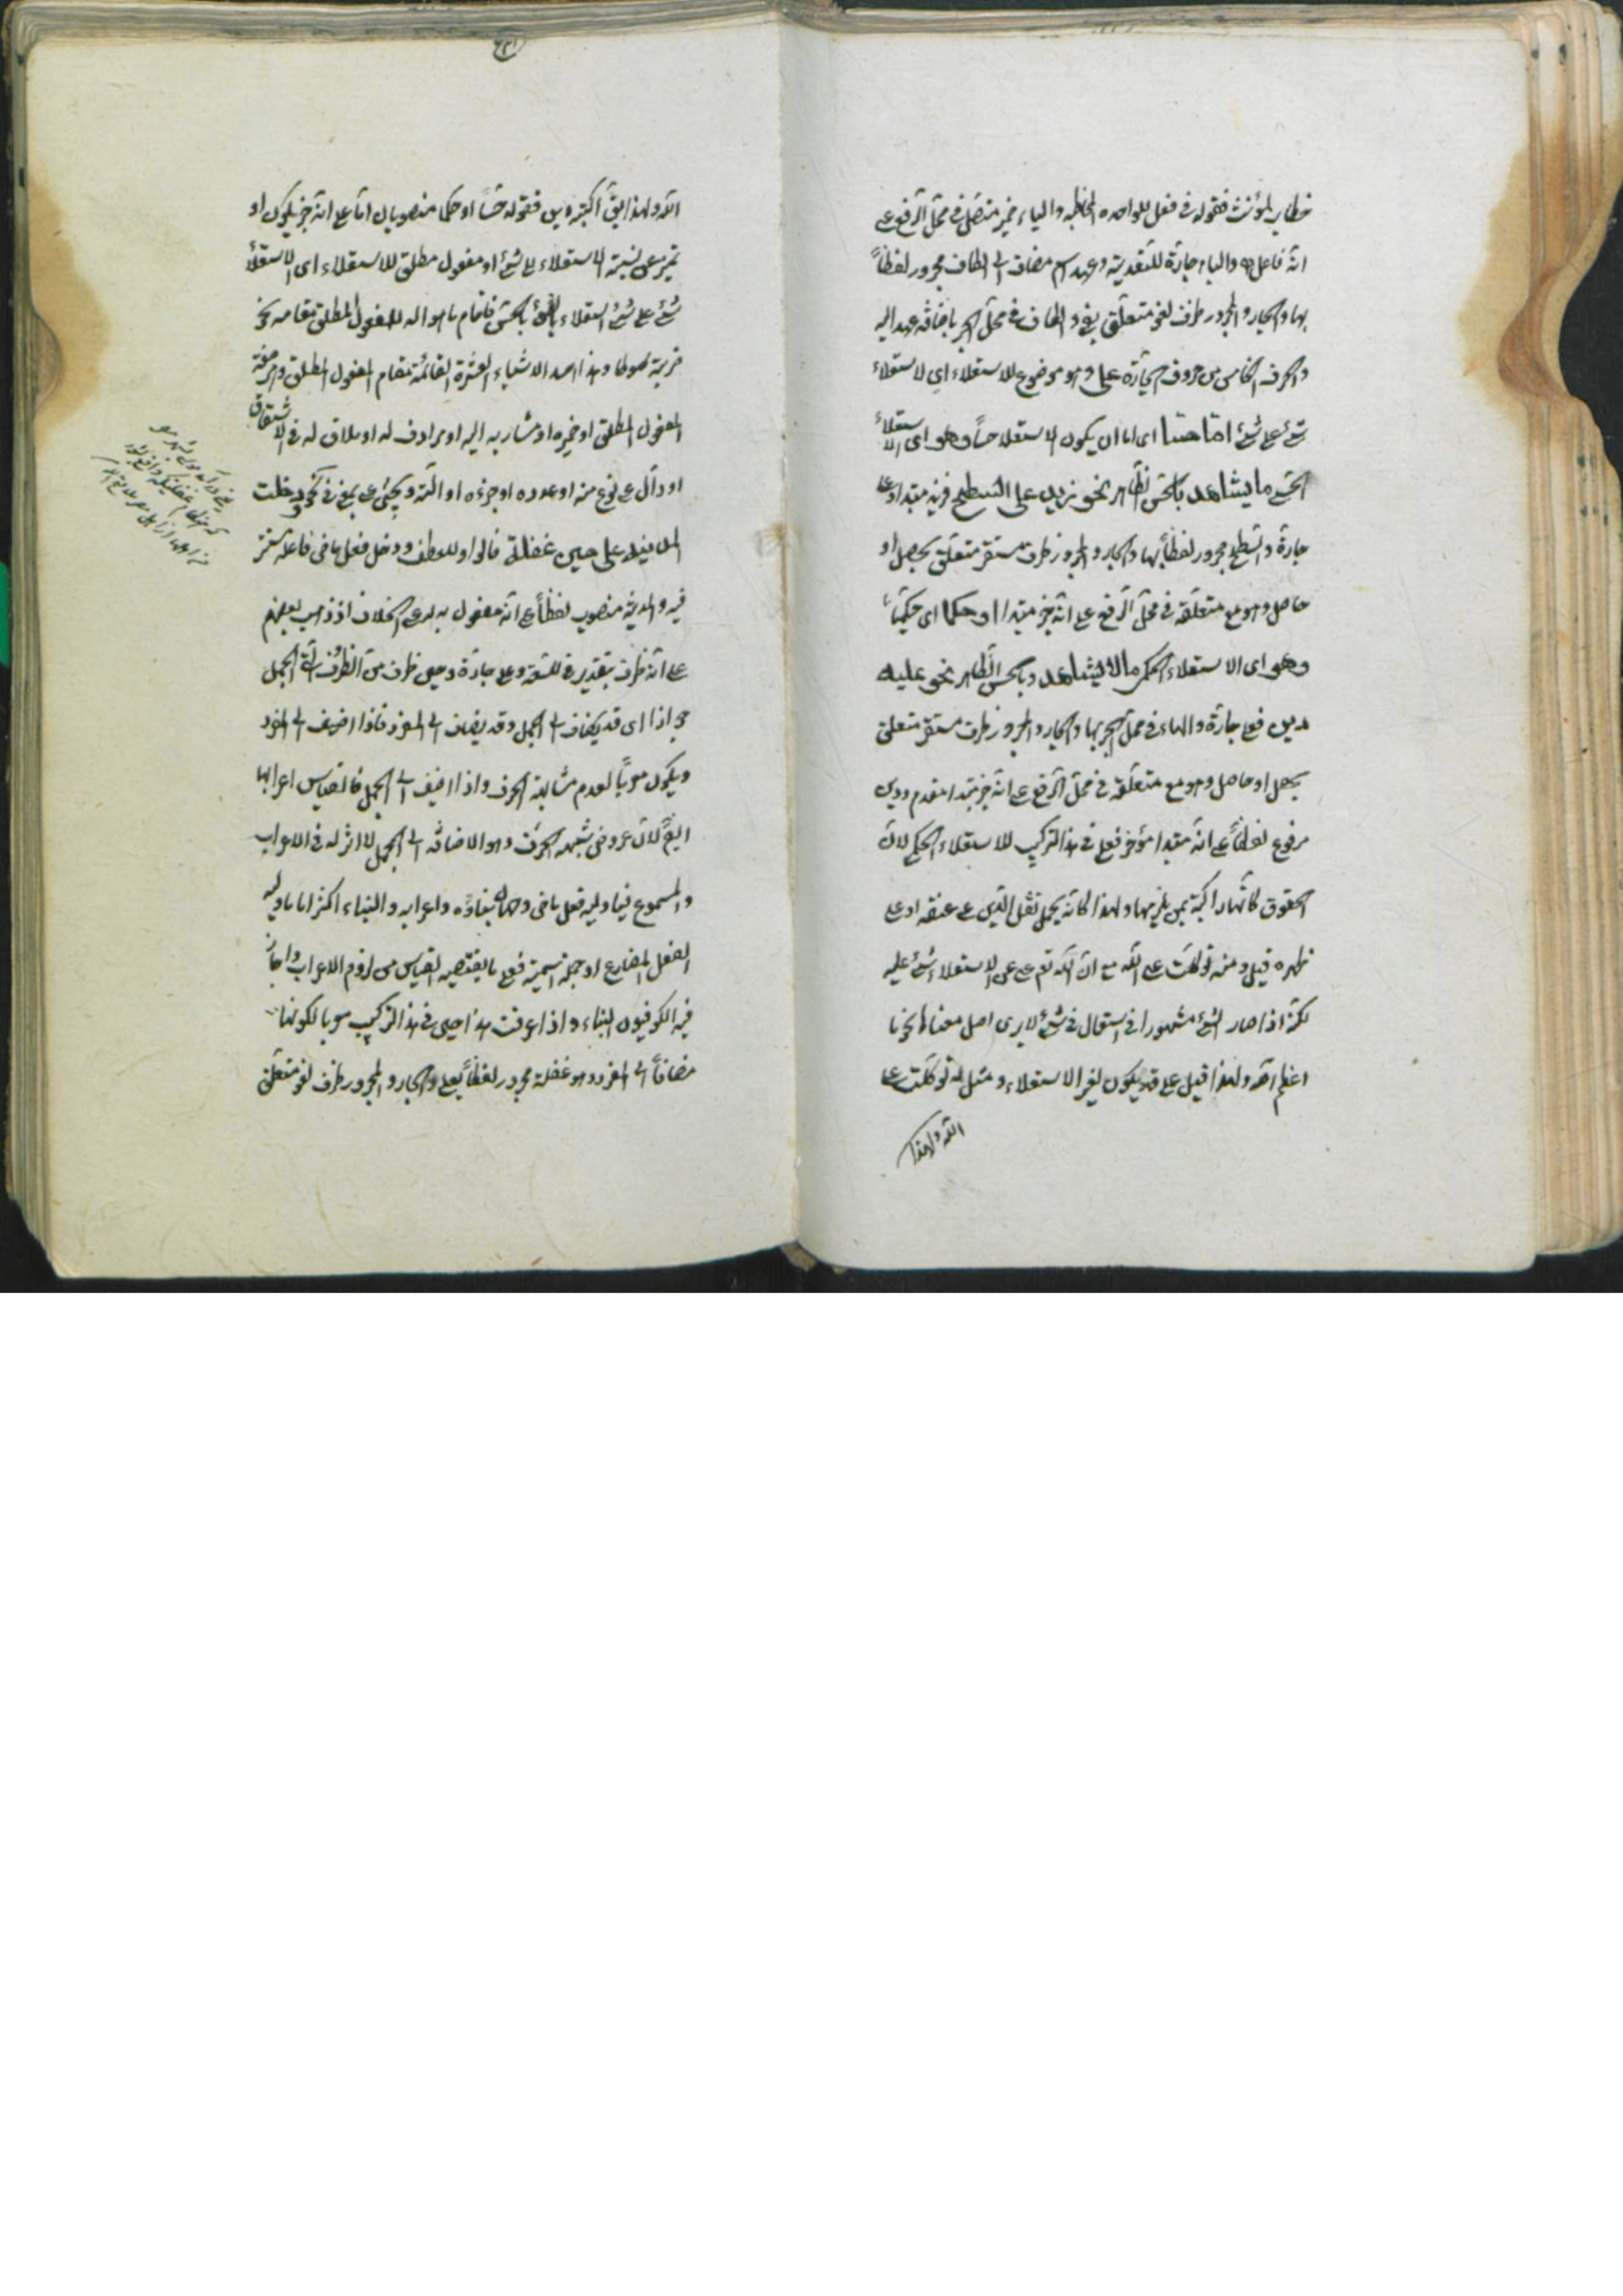 خطاب لمؤنث فقوله فى فعل للواحدة المخاطبة والياء ضمير متصل فى محل الرفع على
انه فاعل له والباء جارة للتعدية وعهد اسم مضاف الى الكاف مجرور لفظاً
بها والجار والمجرور ظرف لغو متعلق بفى والكاف فى محل الجر باضافة عهد اليه
والحرف الخامس من حروف الجارة على وهو موضوع للاستعلاء اى لاستعلاء
شئ على شئ اما حسا اى اما ان يكون الاستعلا حساً وهو اى الاستعلاء
الحسى ما يشاهد بالحس الظاهر نحو زيد على السطح فزيد مبتدا وعلى
جارة والسطح مجرور لفظاً بها والجار والمجرور ظرف مستقر متعلق بحصل او
حاصل وهو مع متعلقه فى محل الرفع على انه خبر مبتدا او حكما اى حكمياً
وهو اى الاستعلاء الحكمى ما لا يشاهد بالحس الظاهر نحو عليه
دين فعلى جارة والهاء فى محل الجر بها والجار والمجرور ظرف مستقر متعلق
بحصل او حاصل وهو مع متعلقه فى محل الرفع على انه خبر مبتدا مقدم ودين
مرفوع لفظاً على انه مبتدا مؤخر فعلى فى هذا التركيب للاستعلاء الحكمى لان
الحقوق كانها راكبة بمن يلزمها ولهذا كانه يحمل ثقل الدين على عنقه او على
ظهره قيل ومنه توكلت على الله مع ان الله تع على عن الاستعلاء شئ عليه
لكنه اذا صار الشئ مشهورا فى استعمال فى شئ لا يرى اصل معناه نحو ما
اعظم الله ولهذا قيل على قد يكون لغير الاستعلاء ومثل له توكلت على
الله ولهذا
الله ولهذا ايق اكبته دين فقوله حساً او حكما منصوبان اما على انه خبر يكون او
تميز عن نسبة الاستعلاء الى شئ او مفعول مطلق للاستعلاء اى الاستعلاء
شئ على شئ استعلاء بالحس فاقام ما هو اله للمفعول المطلق مقامه نحو
ضربته سوطا وهذا احد الاشياء العشرة القائمة مقام المفعول المطلق وهى صفة
المفعول المطلق او ضميره او مشار به اليه او مرادف له او ملاق له فى الاشتقاق
او دال على نوع منه او عدده او جزءه او الته ويجئ على بمعنى فى نحو ودخلت
المدينة على حين غفلة فالواو للعطف ودخل فعل ماض فاعله مستتر
فيه والمدينة منصوب لفظاً على انه مفعول به لدى الخلاف اذ ذهب بعضهم
على انه ظرف بتقدير فى للسعة وعلى جارة وحين ظرف من الظروف الى الجمل
جوازا اى قد يضاف الى الجمل وقد يضاف الى المفرد فاذا اضيف الى المفرد
ويكون معرباً لعدم مشابهة الحرف واذا اضيف الى الجمل فالقياس اعرابها
ايضاً لان عروض شبهه الحرف وهو الاضافة الى الجمل لا اثر له فى الاعراب
والمسموع فيما وليه فعل ماض وجهان بناؤه واعرابه والبناء اكثر اما ما وليه
الفعل المضارع او جملة اسمية فعلى ما يقتضيه القياس من لزوم الاعراب واجاز
فيه الكوفيون البناء واذا عرفت هذا حين فى هذا التركيب معربا لكونها
مضافاً الى المفرد وهو غفلة مجرور لفظاً بعلى والجار والمجرور ظرف لغو متعلق